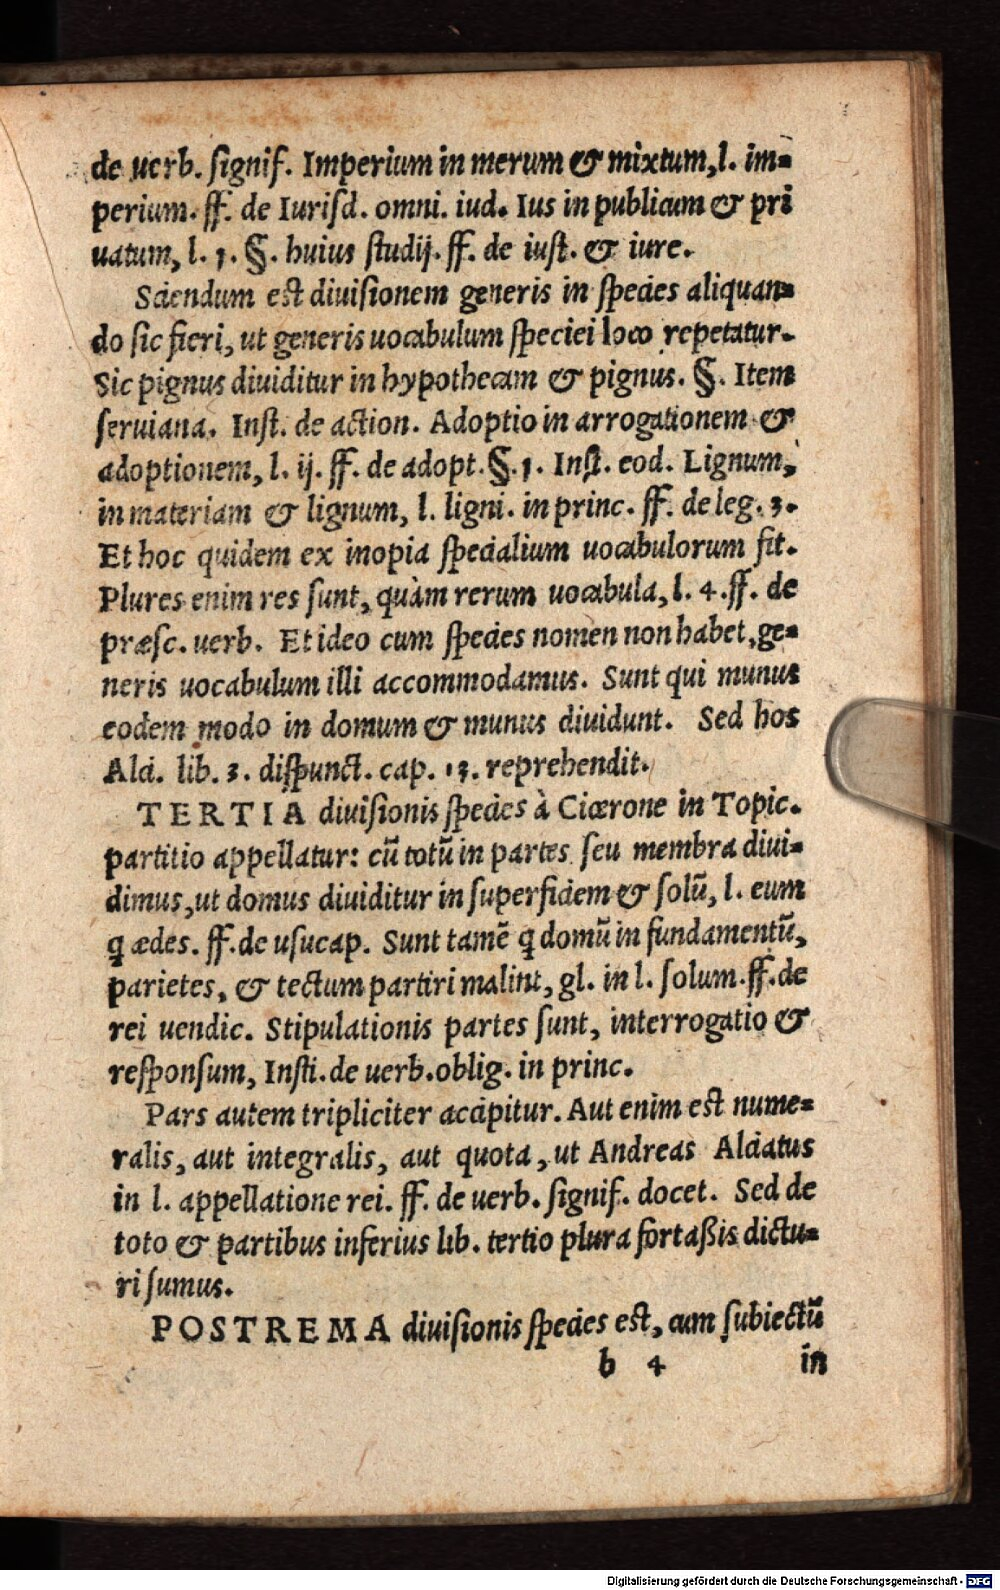 de uerb. ſignif. Imperium in merum & mixtum, l. im=
perium. ff. de Iuriſd. omni. iud. Ius in publicum & pri
uatum, l. 1. §. huius ſtudij. ff. de iuſt. & iure.
Sciendum eſt diuiſionem generis in ſpecies aliquan=
do ſic fieri, ut generis uocabulum ſpeciei loco repetatur.
Sic pignus diuiditur in hypothecam & pignus. §. Item
ſeruiana. Inſt. de action. Adoptio in arrogationem &
adoptionem, l. ij. ff. de adopt. §. 1. Inſt. eod. Lignum,
in materiam & lignum, l. ligni. in princ. ff. de leg. 3.
Et hoc quidem ex inopia ſpecialium uocabulorum fit.
Plures enim res ſunt, quàm rerum uocabula, l. 4. ff. de
præſc. uerb. Et ideo cum ſpecies nomen non habet, ge=
neris uocabulum illi accommodamus. Sunt qui munus
eodem modo in domum & munus diuidunt. Sed hos
Alci. lib. 3. diſpunct. cap. 13. reprehendit.
TERTIA diuiſionis ſpecies à Cicerone in Topic.
partitio appellatur: cū totū in partes ſeu membra diui=
dimus, ut domus diuiditur in ſuperficiem & ſolū, l. eum
q ædes. ff. de uſucap. Sunt tamē q domū in fundamentū,
parietes, & tectum partiri malint, gl. in l. ſolum. ff. de
rei uendic. Stipulationis partes ſunt, interrogatio &
reſponſum, Inſti. de uerb. oblig. in princ.
Pars autem tripliciter accipitur. Aut enim eſt nume=
ralis, aut integralis, aut quota, ut Andreas Alciatus
in l. appellatione rei. ff. de uerb. ſignif. docet. Sed de
toto & partibus inferius lib. tertio plura fortaßis dictu=
ri ſumus.
POSTREMA diuiſionis ſpecies eſt, cum ſubiectū
b 4 in
Digitalisierung gefördert durch die Deutsche Forschungsgemeinschaft - DFG